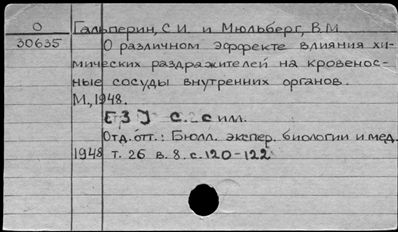 О
30635
Гальперин, С.И. и Мюльберг, В.М.
О различном эффекте влияния хи-
мических раздражителей на кровенос-
ные сосуды внутренних органов.
М., 1948.
[3] с. с илл.
Отд. отт.: Бюлл. экспер. биологии и мед.
1948 т. 26 в. 8. с. 120-122